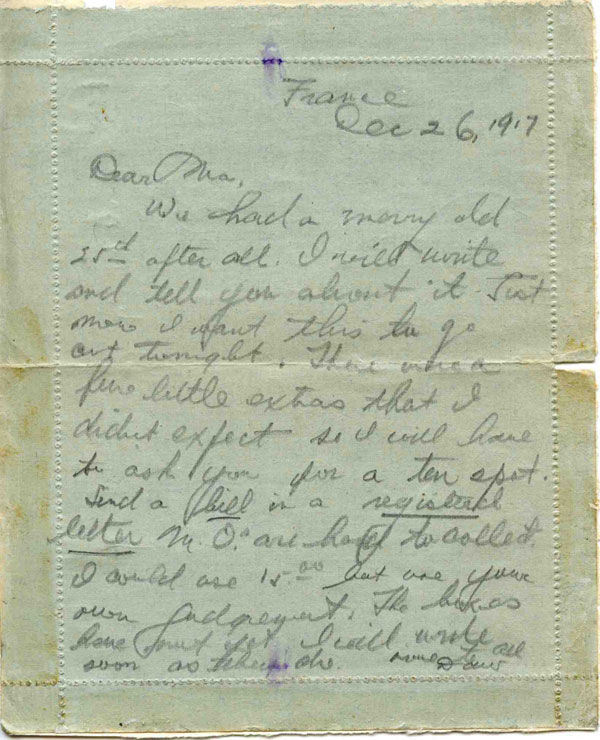 France
Dec 26, 1917
Dear Ma,
We had a merry old
25th after all. I will write
and tell you about it. Just
now I want this to go
out tonight. There were a
few little extras that I
didn't expect so I will have
to ask you for a ten spot.
Send a bill in a registered
letter M.O.s are hard to collect.
I could use 15.00 but use your
own judgement. The boxes
have not yet I will write
soon as they do.